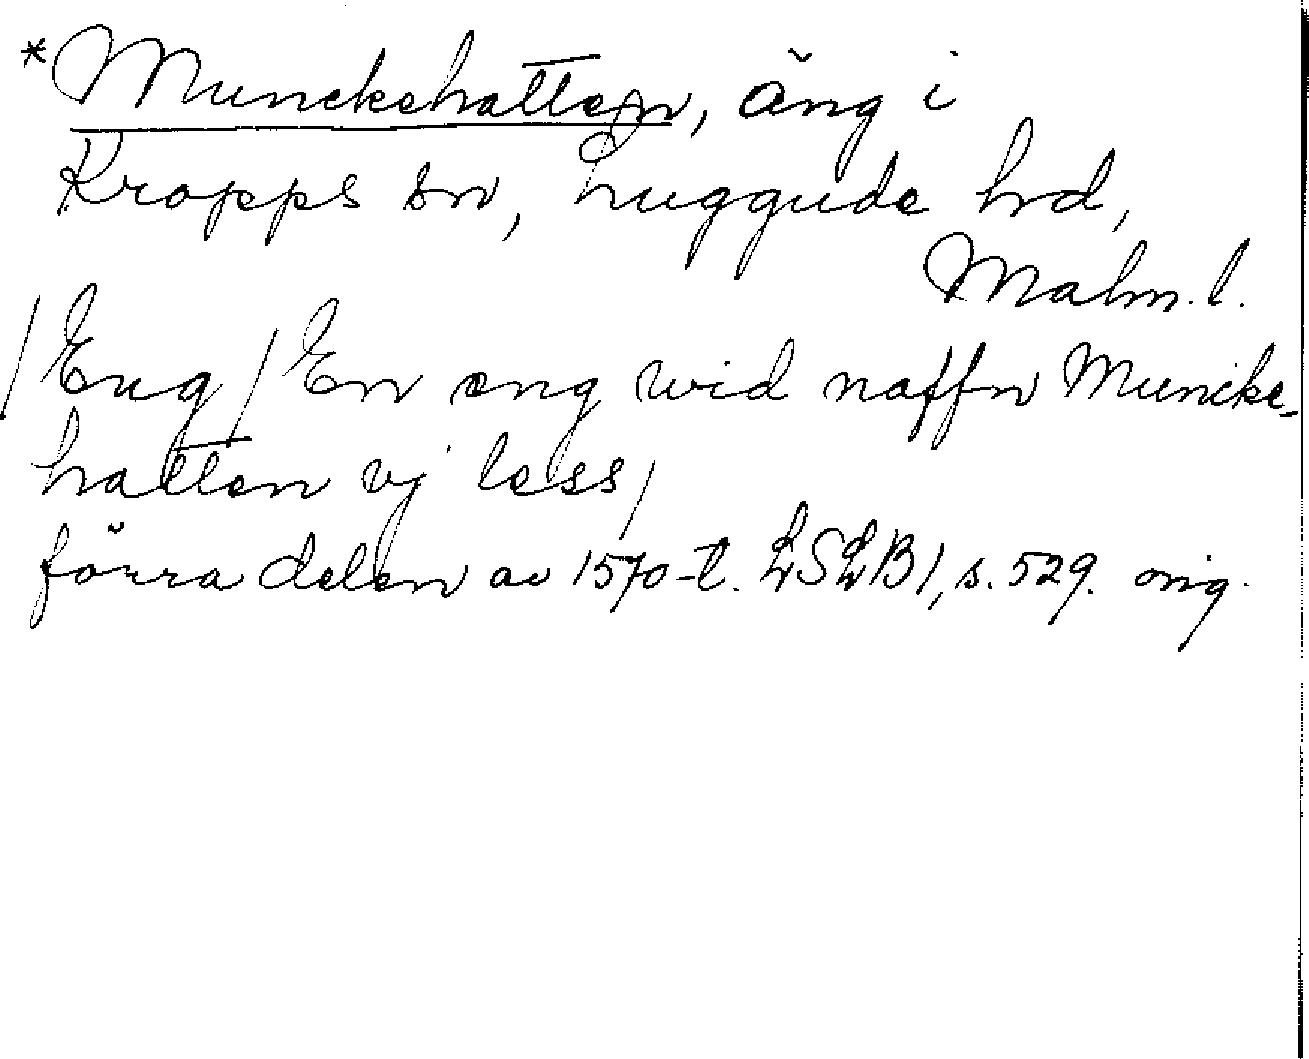 *Munckehatten, äng i
Kropps sn, Luggude hd,
Malm. l.
/Eng/ En eng wid naffn Muncke-
hatten vj less/
förra delen av 1570-t. LSLB1, s. 529. orig.